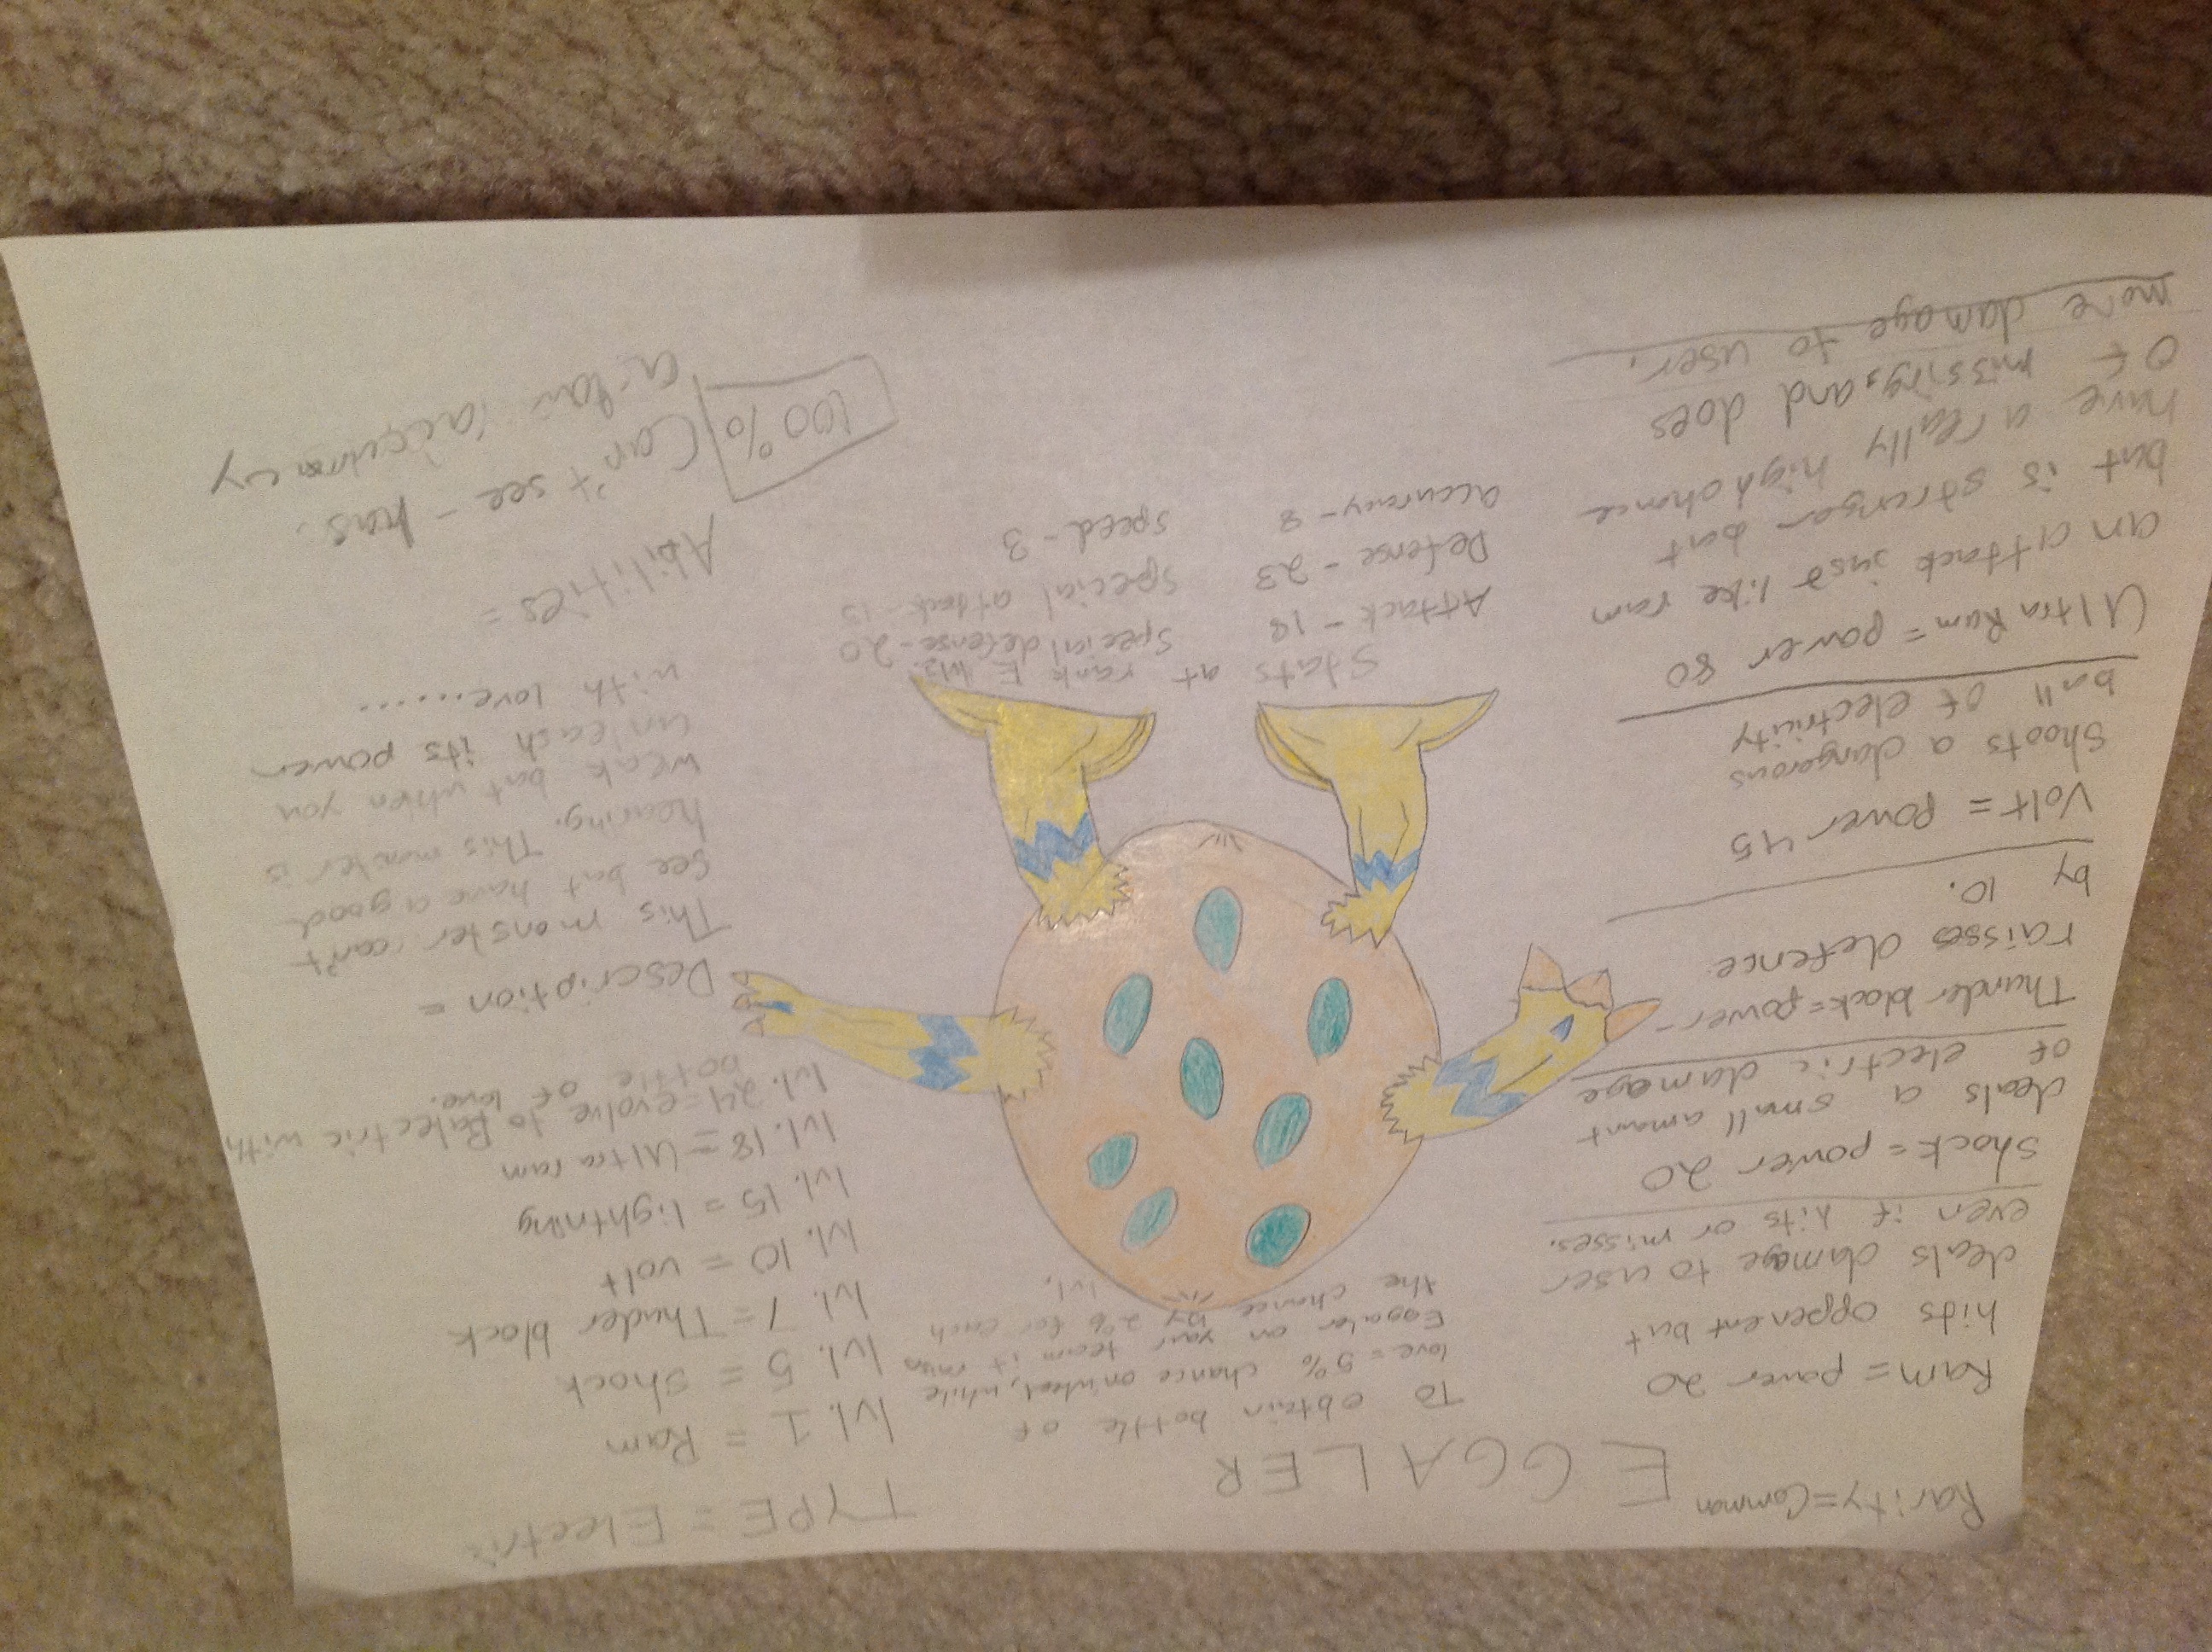 Rarity=Common
EGGALER
TYPE = Electric
Ram = power 20
hits oppenent but
deals damage to user
even if hits or misses.
Shock = power 20
deals a small amount
of electric damage
Thunder block = power -
raisses defence
by 10.
Volt = power 45
Shoots a dangerous
ball of electricity
Ultra Ram = power 80
an attack just like ram
but is stronger but
have a really high chance
of missing, and does
more damage to user.
To obtain bottle of
love = 5% chance on wheel, while
Eggaler on your team it
the chance by 2% for each
lvl.
Stats at rank E
Attack - 18
Defense - 23
accuracy - 8
Special defense - 20
Special attack - 15
Speed - 3
lvl. 1 = Ram
lvl. 5 = Shock
lvl. 7 = Thunder block
lvl. 10 = volt
lvl. 15 = lightning
lvl. 18 = Ultra ram
lvl. 24 = evolve to with
bottle of love.
Description =
This monster can't
see but have a good
hearing. This monster is
weak but when you
unleash its power
with love......
Abilities =
100% Can't see - has
a low accuracy